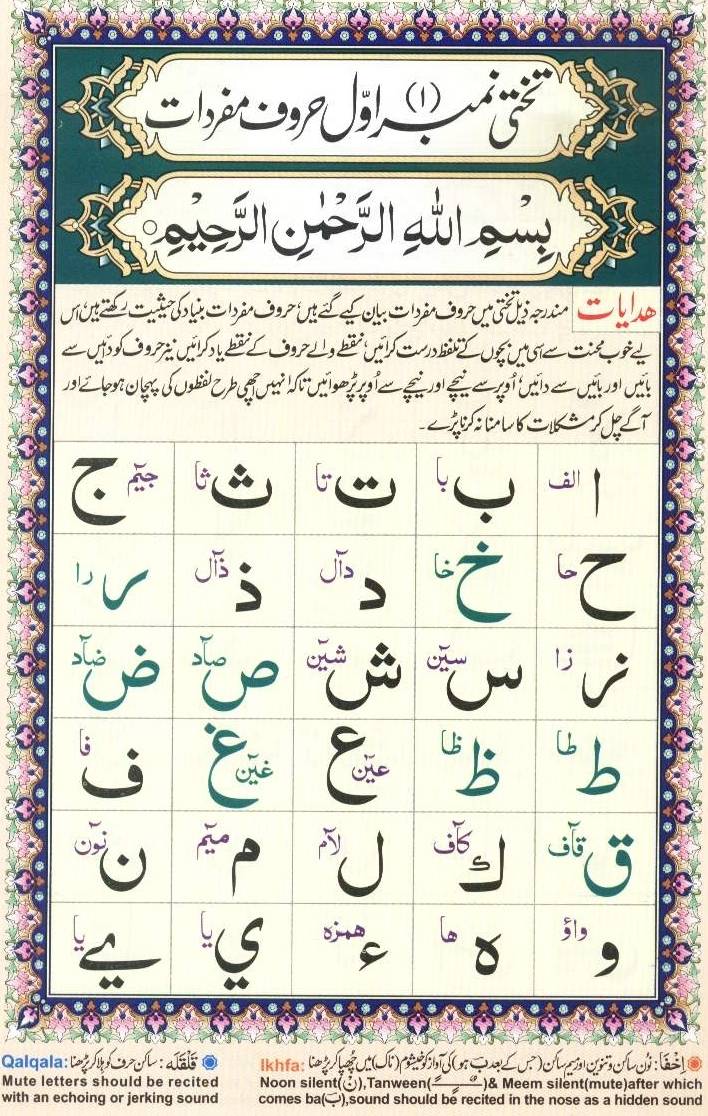 تختی نمبر (۱) اوّل حروف مفردات
بِسْمِ اللّٰهِ الرَّحْمٰنِ الرَّحِیْمِ
ھدایات مندرجہ ذیل تختی میں حروف مفردات بیان کیے گئے ہیں، حروف مفردات بنیاد کی حیثیت رکھتے ہیں اس
لیے خوب محنت سے اسی میں بچوں کے تلفظ درست کرائیں، نقطے والے حروف کے نقطے یاد کرائیں نیز حروف کو دائیں سے
بائیں اور بائیں سے دائیں، اُوپر سے نیچے اور نیچے سے اُوپر پڑھوائیں تاکہ انہیں اچھی طرح لفظوں کی پہچان ہوجائے اور
آگے چل کر مشکلات کا سامنا نہ کرنا پڑے۔
ا الف ب با ت تا ث ثا ج جیٓم
ح حا خ خا د دآل ذ ذآل ر را
ز زا س سیٓن ش شیٓن ص صآد ض ضآد
ط طا ظ ظا ع عیٓن غ غیٓن ف فا
ق قآف ك کآف ل لآم م میٓم ن نوٓن
و واؤ ہ ھا ء ھمزہ ي یا ے یا
اِخْفَا: نُون ساکن و تنوین اور میم ساکن (جس کے بعد بَ ہو) کی آواز کو خیشوم (ناک) میں چُھپا کر پڑھنا Ikhfa:
Noon silent(نْ),Tanween(ـًـٍـٌ)& Meem silent(mute)after which
comes ba(بَ),sound should be recited in the nose as a hidden sound
قَلْقَلَه: ساکن حرف کو ہلا کر پڑھنا Qalqala:
Mute letters should be recited
with an echoing or jerking sound